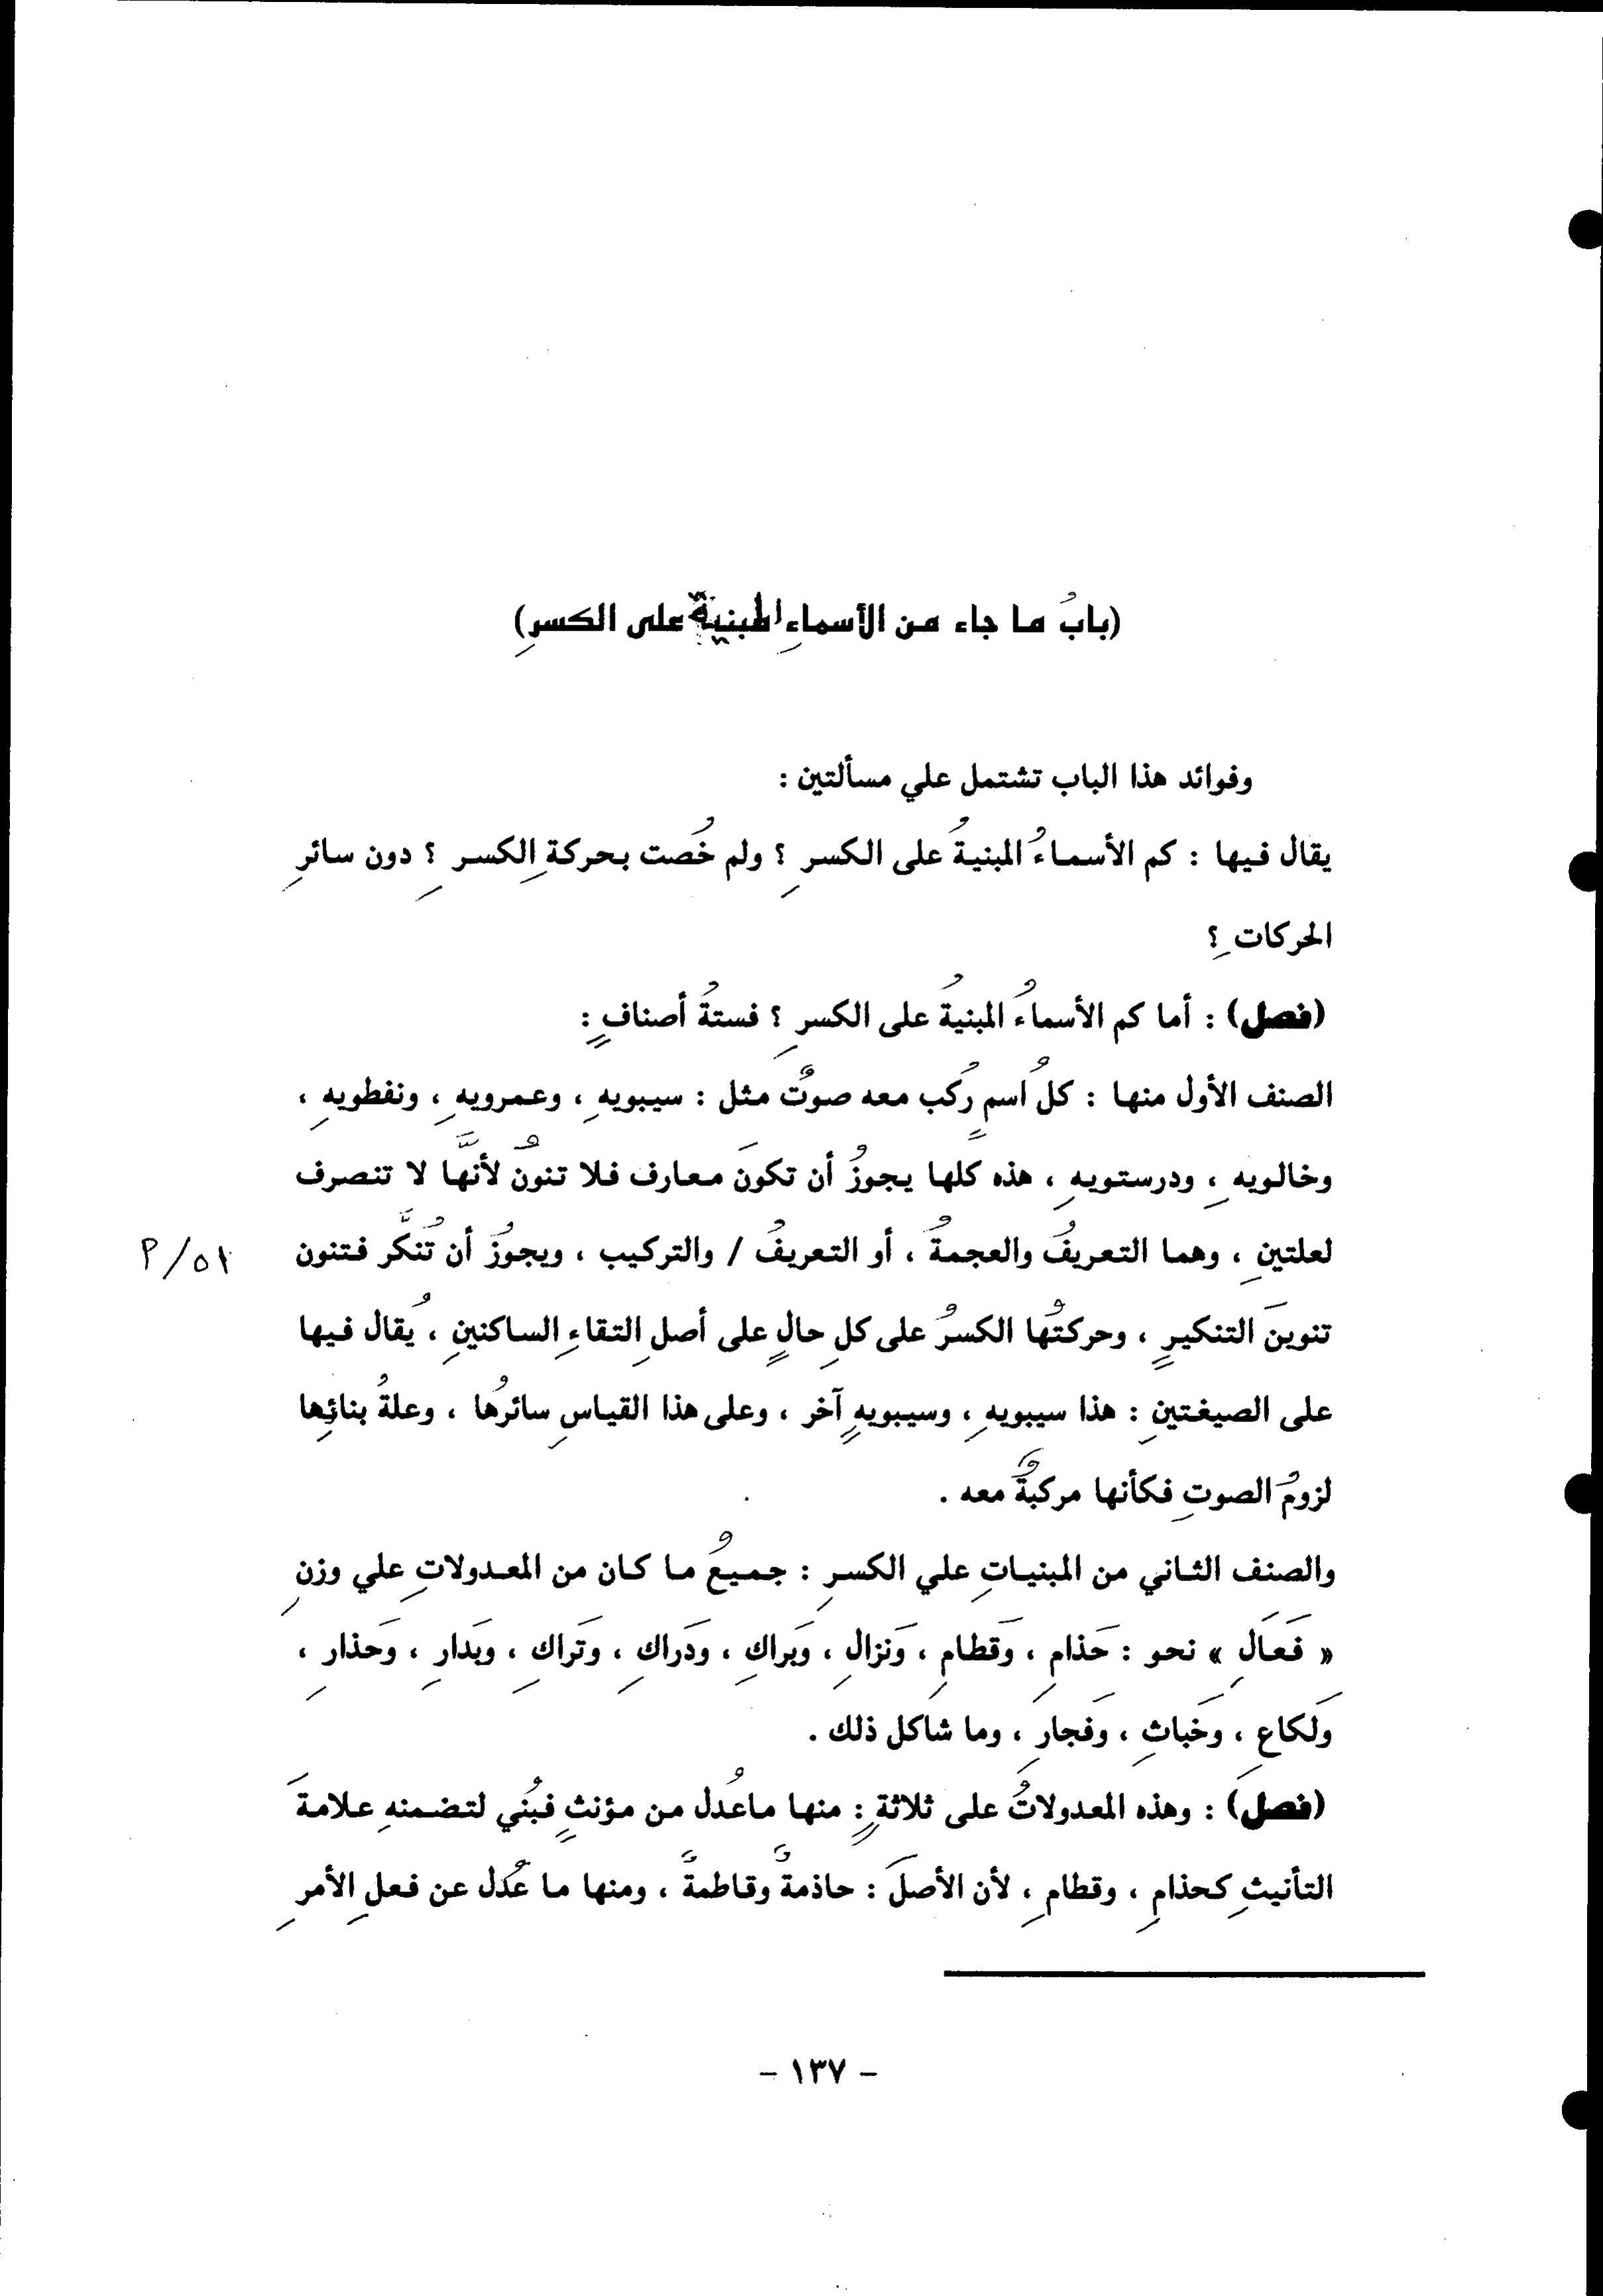 (بابُ ما جاء من الأسماءِ المبنيةِ على الكسرِ)
وفوائد هذا الباب تشتمل علي مسألتين :
يقال فيها : كم الأسماءُ المبنيةُ على الكسرِ ؟ ولم خُصت بحركةِ الكسرِ ؟ دون سائرِ
الحركاتِ ؟
(فصل) : أما كم الأسماءُ المبنيةُ على الكسرِ ؟ فستةُ أصنافٍ :
الصنف الأول منها : كلُ اسمٍ رُكب معه صوتٌ مثل : سيبويهِ ، وعمرويهِ ، ونفطويهِ ،
وخالويهِ ، ودرستويهِ ، هذه كلها يجوزُ أن تكونَ معارف فلا تنونُ لأنَّها لا تنصرف
لعلتينِ ، وهما التعريفُ والعجمةُ ، أو التعريفُ / والتركيب ، ويجوزُ أن تُنكَّر فتنون
٥١/م
تنوينَ التنكيرٍ ، وحركتُها الكسرُ على كلِ حالٍ على أصلِ التقاءِ الساكنينِ ، يُقال فيها
على الصيغتينِ : هذا سيبويهِ ، وسيبويهٍ آخر ، وعلى هذا القياسِ سائرُها ، وعلةُ بنائِها
لزومُ الصوتِ فكأنها مركبةٌ معه .
والصنف الثاني من المبنياتِ علي الكسرِ : جميعُ ما كان من المعدولاتِ علي وزنِ
« فَعَالِ » نحو : حَذامِ ، وَقطامِ ، وَنزالِ ، وَبراكِ ، ودَراكِ ، وتَراكِ ، وبَدارِ ، وَحذارِ ،
وَلَكاعِ ، وَخباثِ ، وَفجارِ ، وما شاكل ذلك .
(فصل) : وهذه المعدولاتُ على ثلاثةٍ : منها ماعُدل من مؤنثٍ فبُني لتضمنهِ علامةَ
التأنيثِ كحذامِ ، وقطامِ ، لأن الأصلَ : حاذمةٌ وقاطمةٌ ، ومنها ما عُدل عن فعلِ الأمرِ
- ١٣٧ -